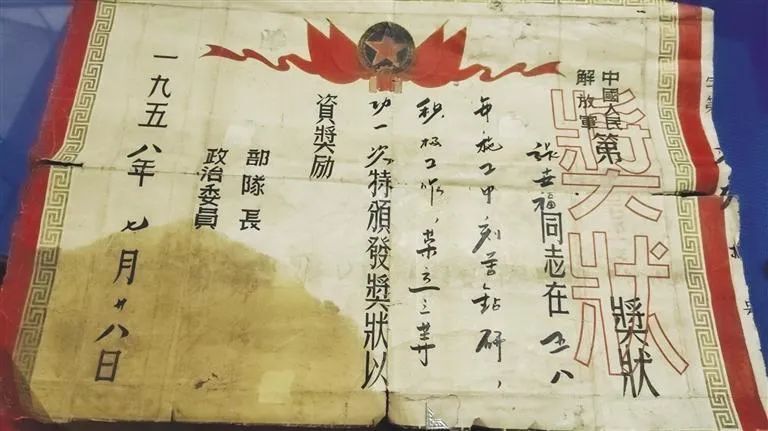 獎狀
中國人民
解放軍
第 獎狀
福同志在五八
年施工中刻苦鉆研，
积极工作，荣立三等
功一次特頒發獎狀以
資獎励
部隊長
政治委員
一九五八年七月廿八日